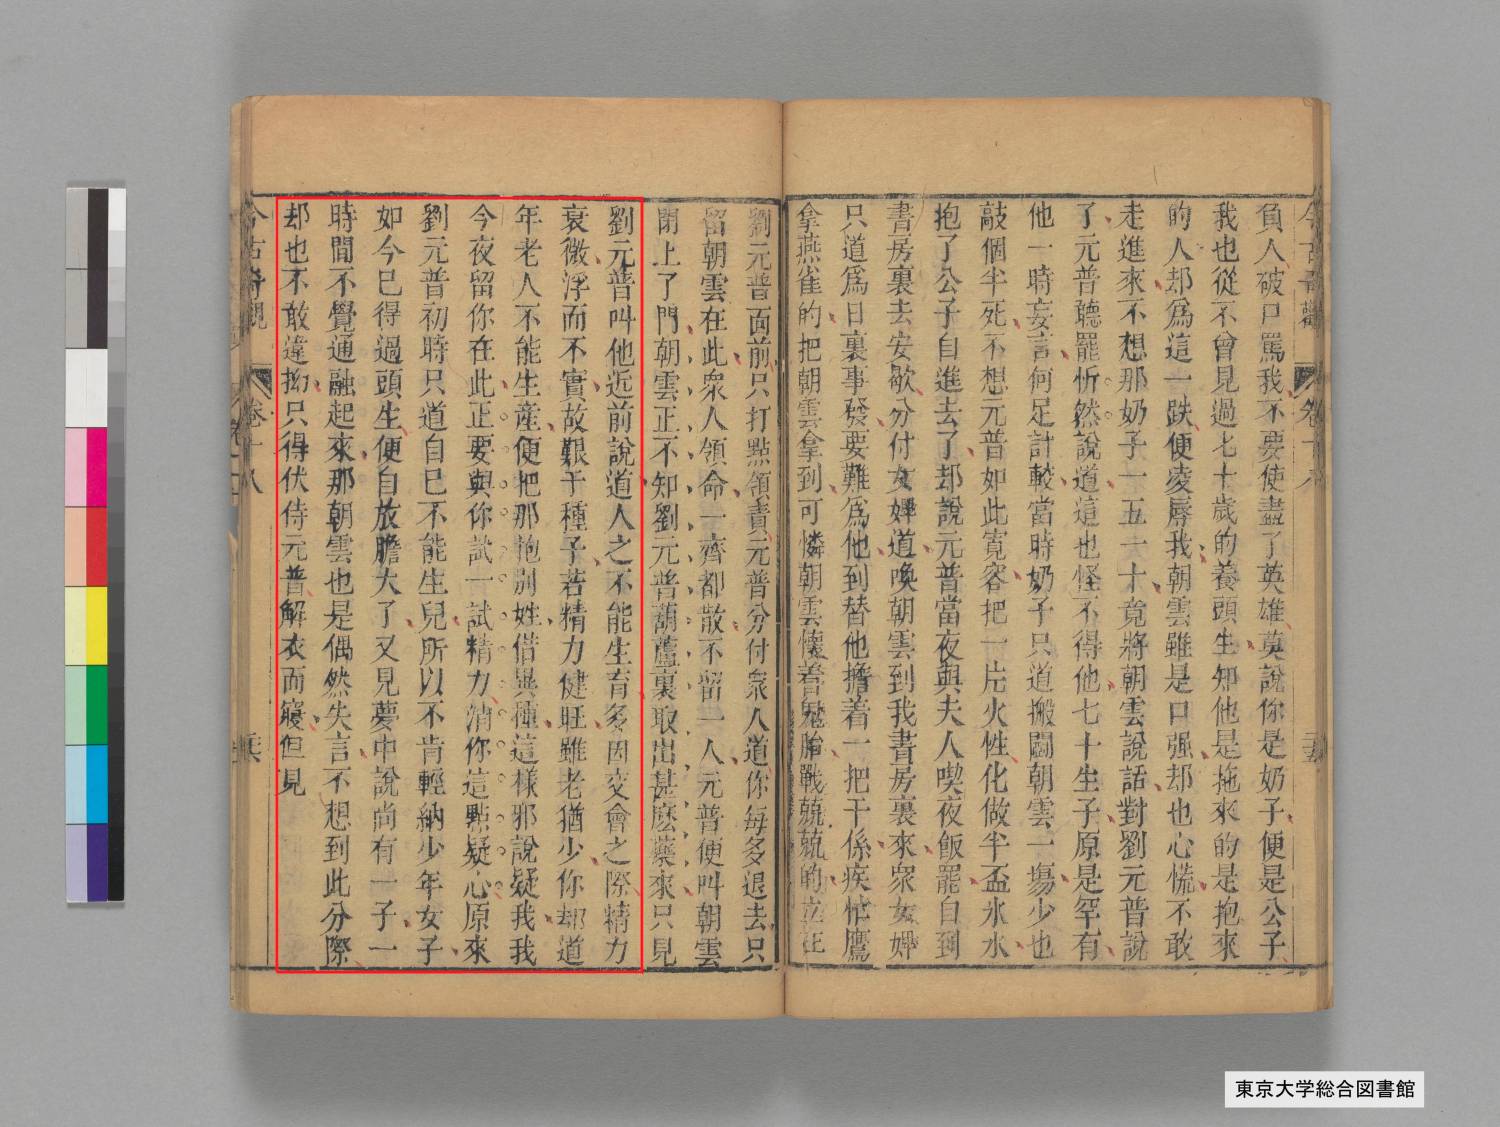 今古奇觀
卷十八
負人破口罵我不要使盡了英雄莫說你是奶子便是公子
我也從不曾見過七十歲的養頭生知他是拖來的是抱來
的人却爲這一跌便凌辱我朝雲雖是口强却也心慌不敢
走進來不想那奶子一五一十竟將朝雲說話對劉元普說
了元普聽罷忻然說道這也怪不得他七十生子原是罕有
他一時妄言何足計較當時奶子只道搬鬭朝雲一塲少也
敲個半死不想元普如此寛容把一片火性化做半盃氷水
抱了公子自進去了却說元普當夜與夫人喫夜飯罷自到
書房裏去安歇分付女婢道喚朝雲到我書房裏來衆女婢
只道爲日裏事發要難爲他到替他擔着一把干係疾忙鷹
拿燕雀的把朝雲拿到可憐朝雲懷着鬼胎戰兢兢的立在
劉元普面前只打點領責元普分付衆人道你每多退去只
留朝雲在此衆人領命一齊都散不留一人元普便叫朝雲
閉上了門朝雲正不知劉元普葫蘆裏取出甚麽藥來只見
劉元普叫他近前說道人之不能生育多因交會之際精力
衰微浮而不實故艱于種子若精力健旺雖老猶少你却道
年老人不能生産便把那抱別姓借異種這樣邪說疑我我
今夜留你在此正要與你試一試精力消你這點疑心原來
劉元普初時只道自已不能生兒所以不肯輕納少年女子
如今已得過頭生便自放膽大了又見夢中說尚有一子一
時間不覺通融起來那朝雲也是偶然失言不想到此分際
却也不敢違拗只得伏侍元普解衣而寢但見
今古奇觀
卷十八
東京大学総合図書館